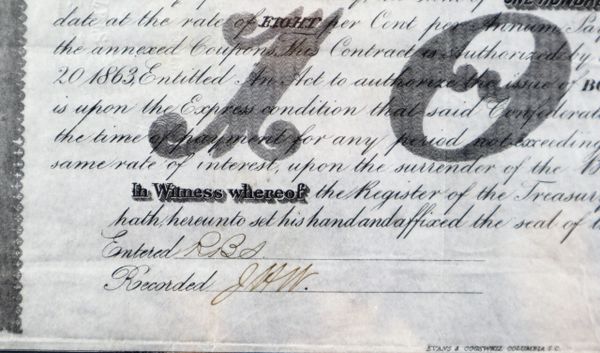 ONE HUNDRE
date at the rate of EIGHT per Cent per annum Pay
the annexed Coupons. This Contract is authorized by
20 1863, Entitled An Act to authorize the issue of BO
is upon the Express condition that said Confederat
the time of payment for any period not exceeding
same rate of interest, upon the surrender of the B
In Witness whereof the Register of the Treasury
hath, hereunto set his hand and affixed the seal of
Entered RBS.
Recorded JHW.
EVANS & COGSWELL COLUMBIA S.C.